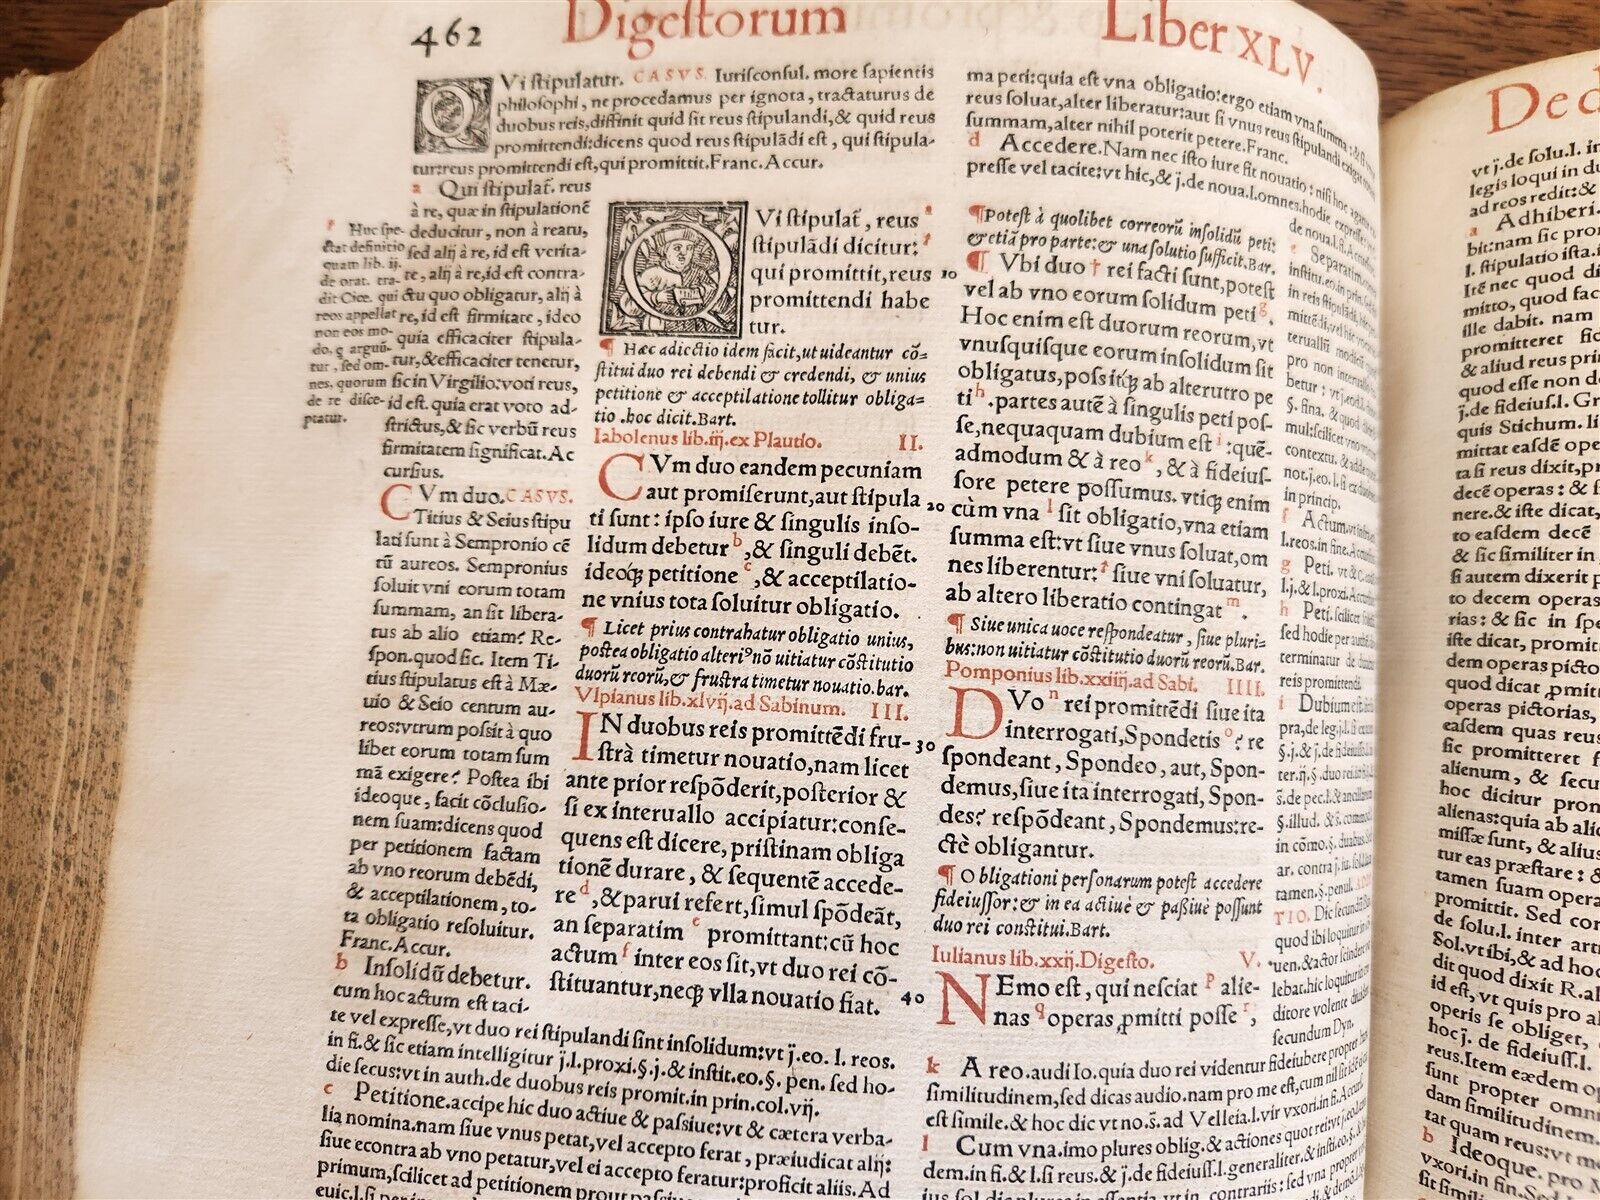 462 Digestorum Liber XLV.
QVi stipulatur. CASVS. Iurisconsul. more sapientis
philosophi, ne procedamus per ignota, tractaturus de
duobus reis, diffinit quid sit reus stipulandi, & quid reus
promittendi: dicens quod reus stipulãdi est, qui stipula-
tur: reus promittendi est, qui promittit. Franc. Accur.
a Qui stipulat̃. reus
à re, quæ in stipulationẽ
deducitur, non à reatu,
sed alij à re, id est verita-
te, alij à re, id est contra-
ctu quo obligatur, alij à
re, id est firmitate, ideo
quia efficaciter stipula-
tur, & efficaciter tenetur,
sic in Virgilio: voti reus,
id est. quia erat voto ad-
strictus, & sic verbũ reus
firmitatem significat. Ac
cursius.
Huc spe-
ctat definitio
quam lib. ij.
de orat. tra-
dit Cice. qui
reos appellat
non eos mo-
do, q̃ arguũ-
tur, sed om-
nes, quorum
de re disce-
ptatur.
CVm duo. CASVS.
Titius & Seius stipu
lati sunt à Sempronio cẽ
tũ aureos. Sempronius
soluit vni eorum totam
summam, an sit libera-
tus ab alio etiam? Re-
spon. quod sic. Item Ti-
tius stipulatus est à Mæ-
uio & Seio centum au-
reos: vtrum possit à quo
libet eorum totam sum
mã exigere? Postea ibi
ideoque, facit cõclusio-
nem suam: dicens quod
per petitionem factam
ab vno reorum debẽdi,
& acceptilationem, to-
ta obligatio resoluitur.
Franc. Accur.
b Insolidũ debetur.
cum hoc actum est taci-
te vel expresse, vt duo rei stipulandi sint insolidum: vt j. eo. l. reos.
in fi. & sic etiam intelligitur j. l. proxi. §. j. & instit. eo. §. pen. sed ho-
die secus: vt in auth. de duobus reis promit. in prin. col. vij.
c Petitione. accipe hic duo actiue & passiue: vt & cætera verba-
lia nomina. nam siue vnus petat, vel accepto ferat, præiudicat alij:
siue econtra ab vno petatur, vel ei accepto feratur: proficit aliis. Ad
primum, scilicet ad petitionem prout
QVi stipulat̃, reus
stipulãdi dicitur:
qui promittit, reus 10
promittendi habe
tur.
¶ Hæc adiectio idem facit, ut uideantur cõ=
stitui duo rei debendi & credendi, & unius
petitione & acceptilatione tollitur obliga=
tio. hoc dicit. Bart.
Iabolenus lib. iij. ex Plautio. II.
CVm duo eandem pecuniam
aut promiserunt, aut stipula 20
ti sunt: ipso iure & singulis inso-
lidum debetur b, & singuli debẽt.
ideoq; petitione c, & acceptilatio-
ne vnius tota soluitur obligatio.
¶ Licet prius contrahatur obligatio unius,
postea obligatio alterius nõ uitiatur cõstitutio
duorũ reorũ, & frustra timetur nouatio. bar.
Vlpianus lib. xlvij. ad Sabinum. III.
IN duobus reis promittẽdi fru- 30
strà timetur nouatio, nam licet
ante prior respõderit, posterior &
si ex interuallo accipiatur: conse-
quens est dicere, pristinam obliga
tionẽ durare, & sequentẽ accede-
re d, & parui refert, simul spõdeãt,
an separatim e promittant: cũ hoc
actum f inter eos sit, vt duo rei cõ-
stituantur, neq; vlla nouatio fiat. 40
ma peti: quia est vna obligatio: ergo etiam vna summa: & si
reus soluat, alter liberatur: aut si vnus reus stipulandi exigat
summam, alter nihil poterit petere. Franc.
d Accedere. Nam nec isto iure fit nouatio: nisi hoc agatur
presse vel tacite: vt hic, & j. de noua. l. omnes. hodie
¶ Potest à quolibet correorũ insolidũ peti:
& etiã pro parte: & una solutio sufficit. Bar.
¶ Vbi duo † rei facti sunt, potest
vel ab vno eorum solidum peti g.
Hoc enim est duorum reorum, vt
vnusquisque eorum insolidum sit
obligatus, possitq; ab alterutro pe
ti h. partes autẽ à singulis peti pos-
se, nequaquam dubium est i: quẽ-
admodum & à reo k, & à fideius-
sore petere possumus. vtiq; enim
cùm vna l sit obligatio, vna etiam
summa est: vt siue vnus soluat, om
nes liberentur: † siue vni soluatur,
ab altero liberatio contingat m.
¶ Siue unica uoce respondeatur, siue pluri=
bus: non uitiatur cõstitutio duorũ reorũ. Bar.
Pomponius lib. xxiiij. ad Sabi. IIII.
DVo n rei promittẽdi siue ita
interrogati, Spondetis o? re
spondeant, Spondeo, aut, Spon-
demus, siue ita interrogati, Spon-
des? respõdeant, Spondemus: re-
ctè obligantur.
¶ Obligationi personarum potest accedere
fideiussor: & in ea actiuè & passiuè possunt
duo rei constitui. Bart.
Iulianus lib. xxij. Digesto. V.
NEmo est, qui nesciat p alie-
nas q operas ꝓmitti posse r,
k A reo. audi Io. quia duo rei videntur fideiubere propter
similitudinem, sed dicas audio. nam pro me est, cum nil sit
est simile. & hoc dic vt no. s̃. ad Velleia. l. vir vxori. in fi. Accur.
l Cum vna. imo plures oblig. & actiones quot rei: vt j. eo.
dem. in fi. & l. si reus. & j. de fideiuss. l. generaliter. & insti. eo. §.
de noua. l. j. Accur.
e Separatim.
in reis stipulãdi,
pro non
contextu.
in princip.
f Actum. vt
l. reos. in fine.
g Peti. vt
l. j. & l. proxi.
h Peti. scilicet
sed hodie per
terminatur
reis promittendi.
i Dubium est
pra, de leg. j. l.
§. j. & j. de fideiuss.
ter. ij. §. duo rei.
s̃. de pec. l. & ancillarum
§. illud. & s̃. commod.
in cõmo. §. duabus.
ar. contra j. iu.
tamen. §. penul.
TIO. Dic secundũ
quod ibi loquitur
uen. & actor
lebat. hic loquitur
ditore volente
secundum Dyn.
De d
vt j. de solu. l. in
legis loqui in du
ad reos redit: &
a Adhiberi.
bit: nam sic pro
l. stipulatio ista. i
Itẽ nec quod di
mitto, quod fac
ille dabit. nam
promitteret fid
& aliud reus pri
quod esse non de
j. de fideius. l. Gr
quis Stichum. li
mittat easdẽ ope
ta si reus dixit, pr
decẽ operas: & s
nere. & iste dicat,
to easdem decẽ
& sic similiter in
si autem dixerit p
to decem operas
rias: & sic in spe
iste dicat, promit
dem operas picto
quod dicat ꝓmitt
operas pictorias,
easdem quas reus
sic promitteret f
alienum, & secu
hoc dicitur pron
alienas: quia ab alio
missæ sunt, & alius
tur eas præstare: &
tamen suam opera
promittit. Sed con
de solu. l. inter arti
Sol. vt ibi, & ad hoc
dit quod dixit R. al
id est, vt quis pro al
operis se obliget,
hoc j. de fideiuss. l.
reus. Item eædem op
sunt propter omni
dam similitudinem.
tat quam reus: vt mo
b Ideoque. pro M
vxori. in fin. S
sit simili